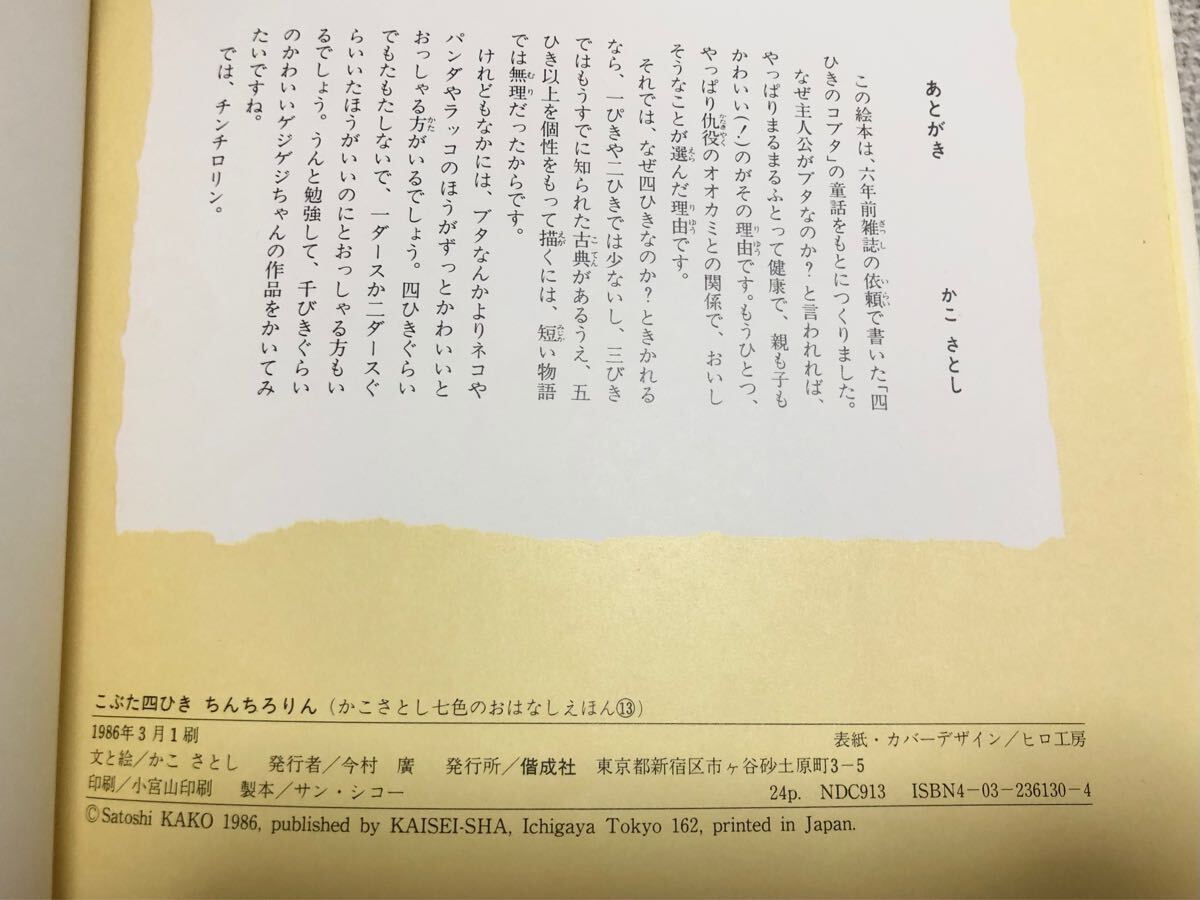 あとがき
かこ さとし
この絵本は、六年前雑誌の依頼で書いた「四
ひきのコブタ」の童話をもとにつくりました。
なぜ主人公がブタなのか？と言われれば、
やっぱりまるまるふとって健康で、親も子も
かわいい（！）のがその理由です。もうひとつ、
やっぱり仇役のオオカミとの関係で、おいし
そうなことが選んだ理由です。
それでは、なぜ四ひきなのか？ときかれる
なら、一ぴきや二ひきでは少ないし、三びき
ではもうすでに知られた古典があるうえ、五
ひき以上を個性をもって描くには、短い物語
では無理だったからです。
けれどもなかには、ブタなんかよりネコや
パンダやラッコのほうがずっとかわいいと
おっしゃる方がいるでしょう。四ひきぐらい
でもたもたしないで、一ダースか二ダースぐ
らいいたほうがいいのにとおっしゃる方もい
るでしょう。うんと勉強して、千びきぐらい
のかわいいゲジゲジちゃんの作品をかいてみ
たいですね。
では、チンチロリン。
こぶた四ひき ちんちろりん（かこさとし七色のおはなしえほん⑬）
1986年3月1刷
表紙・カバーデザイン／ヒロ工房
文と絵／かこ さとし 発行者／今村 廣 発行所／偕成社 東京都新宿区市ヶ谷砂土原町3-5
印刷／小宮山印刷 製本／サン・シコー 24p. NDC913 ISBN4-03-236130-4
©Satoshi KAKO 1986, published by KAISEI-SHA, Ichigaya Tokyo 162, printed in Japan.